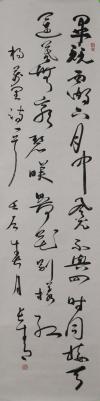 畢竟西湖六月中風光不與四時同接天
蓮葉無窮碧映日荷花別樣紅
楊萬里詩一首壬辰春月